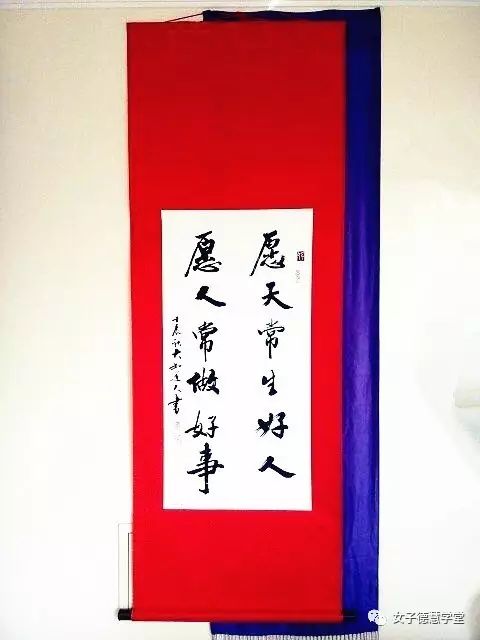 愿天常生好人
愿人常做好事
女子德慧学堂